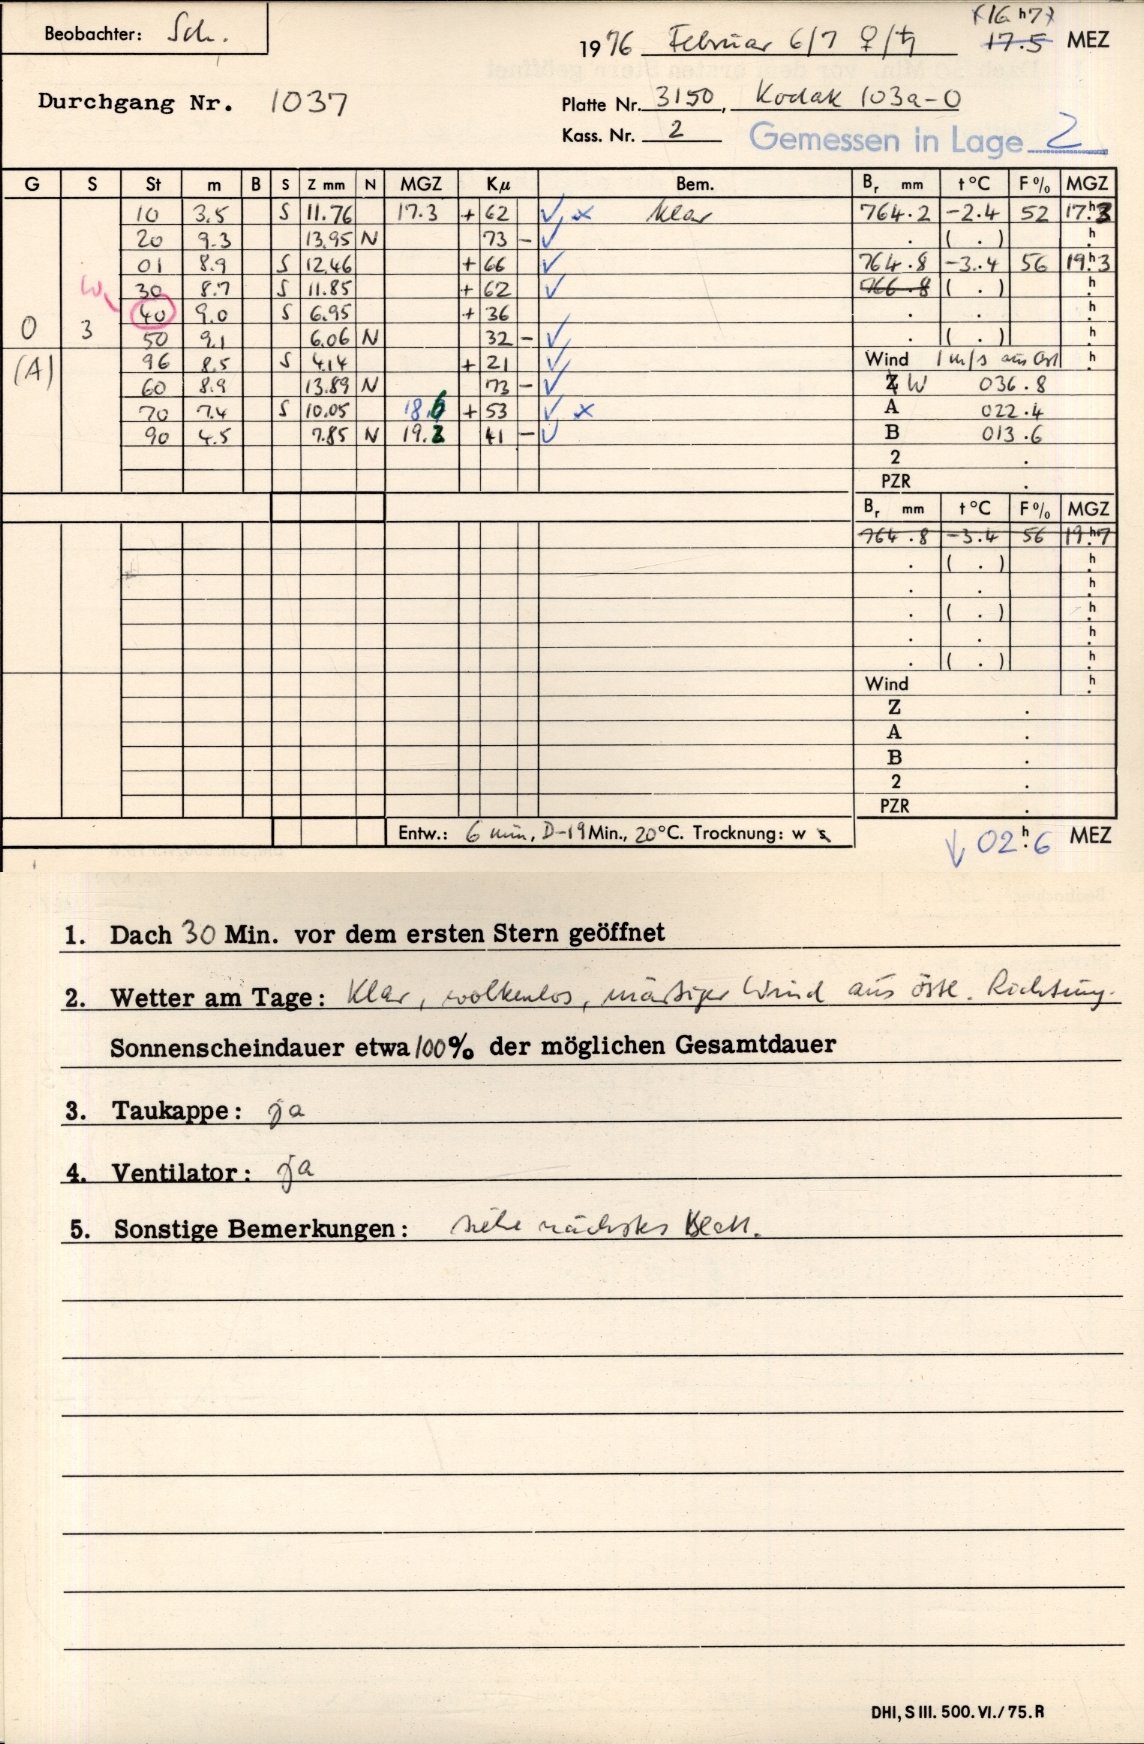 Beobachter: Sch.
(16 h 7)
1976 Februar 6/7 ♀/♄ 17.5 MEZ
Durchgang Nr. 1037
Platte Nr. 3150, Kodak 103a-O
Kass. Nr. 2 Gemessen in Lage 2
G S St m B S Z mm N MGZ Kμ Bem. Br mm t °C F % MGZ
10 3.5 S 11.76 17.3 +62 ✓, × klar 764.2 -2.4 52 17.h3
20 9.3 13.95 N 73 - ✓ . ( . ) h
01 8.9 S 12.46 +66 ✓ 764.8 -3.4 56 19.h3
W 30 8.7 S 11.85 +62 ✓ 766.8 ( . ) h
40 9.0 S 6.95 +36 . . h
0 3 50 9.1 6.06 N 32 - ✓ . ( . ) h
(A) 96 8.5 S 4.14 +21 ✓ Wind 1 m/s aus Ost h
60 8.9 13.89 N 73 - ✓ Z W 036.8
70 7.4 S 10.05 18.6 +53 ✓ × A 022.4
90 4.5 7.85 N 19.2 41 - ✓ B 013.6
2 .
PZR .
Br mm t °C F % MGZ
764.8 -3.4 56 19.h7
. ( . ) h
. . h
. ( . ) h
. . h
. ( . ) h
Wind h
Z .
A .
B .
2 .
PZR .
Entw.: 6 min, D-19 Min., 20°C. Trocknung: w s
↓ 02.h6 MEZ
1. Dach 30 Min. vor dem ersten Stern geöffnet
2. Wetter am Tage: Klar, wolkenlos, mäßiger Wind aus östl. Richtung.
Sonnenscheindauer etwa 100% der möglichen Gesamtdauer
3. Taukappe: ja
4. Ventilator: ja
5. Sonstige Bemerkungen: siehe nächstes Blatt.
DHI, S III. 500. VI./75. R